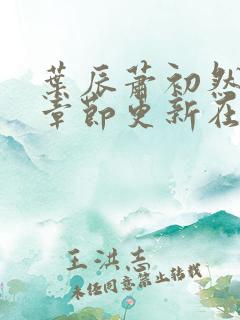 葉辰蕭初然
章節更新在
王洪志
未经同意禁止转载